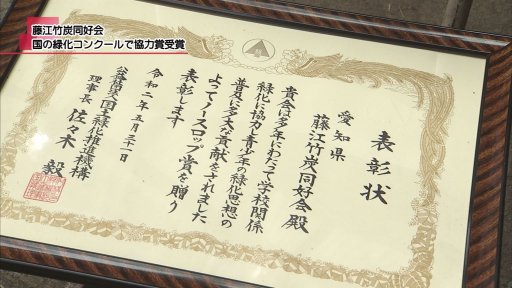 藤江竹炭同好会
国の緑化コンクールで協力賞受賞
表彰状
愛知県
藤江竹炭同好会殿
貴会は多年にわたって学校関係
緑化に協力し青少年の緑化思想の
普及に多大な貢献をされました
よってノースロップ賞を贈り
表彰します
令和二年五月三十一日
公益社団法人国土緑化推進機構
理事長 佐々木毅